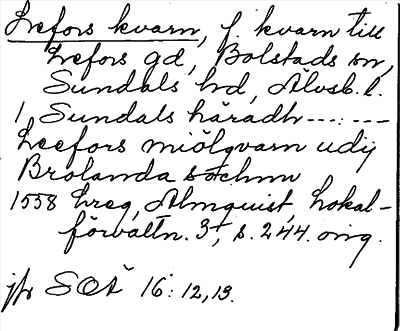 Lrefors kvarn, f. kvarn till
Lrefors gd, Bolstads sn,
Sundals hd, Älvsb. l.
1 Sundals häradh -------
Leefors miölqvarn udij
Brolanda sochnn
1558 hreg, Almquist, Lokal-
förvaltn. 3, s. 244. orig.
jfr SOÄ 16: 12, 13.